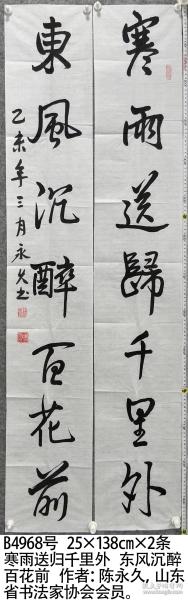 寒雨送歸千里外
東風沉醉百花前
乙未年三月永久书
B4968号 25×138cm×2条
寒雨送归千里外 东风沉醉
百花前 作者：陈永久，山东
省书法家协会会员。